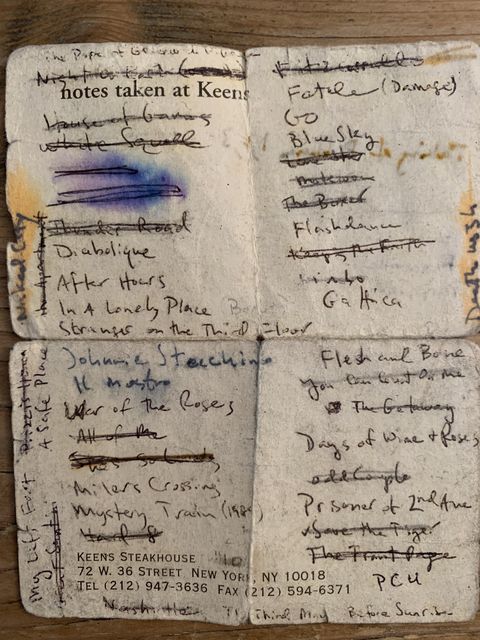 The Pope of Greenwich
Night
notes taken at Keens
House of Games
White Squall
Thunder Road
Diabolique
After Hours
In A Lonely Place
Stranger on the Third Floor
Naked City
The Apartment
Fitzcarraldo
Fatale (Damage)
GO
Blue Sky
Lone Star
The Boxer
Flashdance
Keeping the Faith
Limbo
Gattica
Death Wish
Johnnie Stecchino
Il Mostro
War of the Roses
All of Me
Milers Crossing
Mystery Train (1989)
Hard 8
KEENS STEAKHOUSE
72 W. 36 STREET NEW YORK, NY 10018
TEL (212) 947-3636 FAX (212) 594-6371
Nashville
Prizzi's Honor
A Safe Place
My Left Foot
Flesh and Bone
You Can Count On Me
The Getaway
Days of Wine + Roses
odd Couple
Prisoner of 2nd Ave
Save the Tiger
The Front Page
PCU
Third Man
Before Sunrise